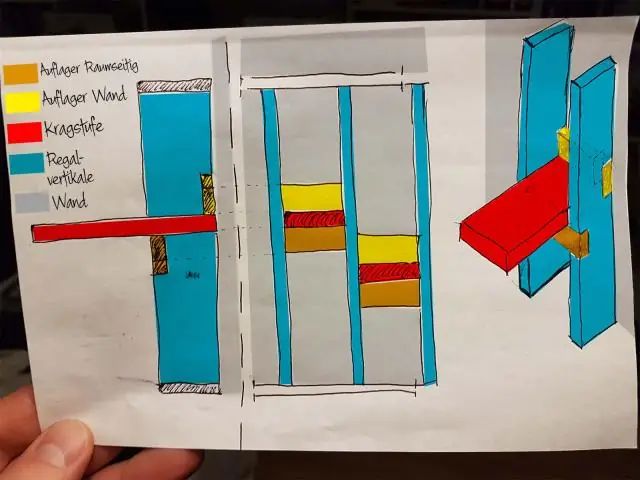 Auflager Raumseitig
Auflager Wand
Kragstufe
Regal-
vertikale
Wand